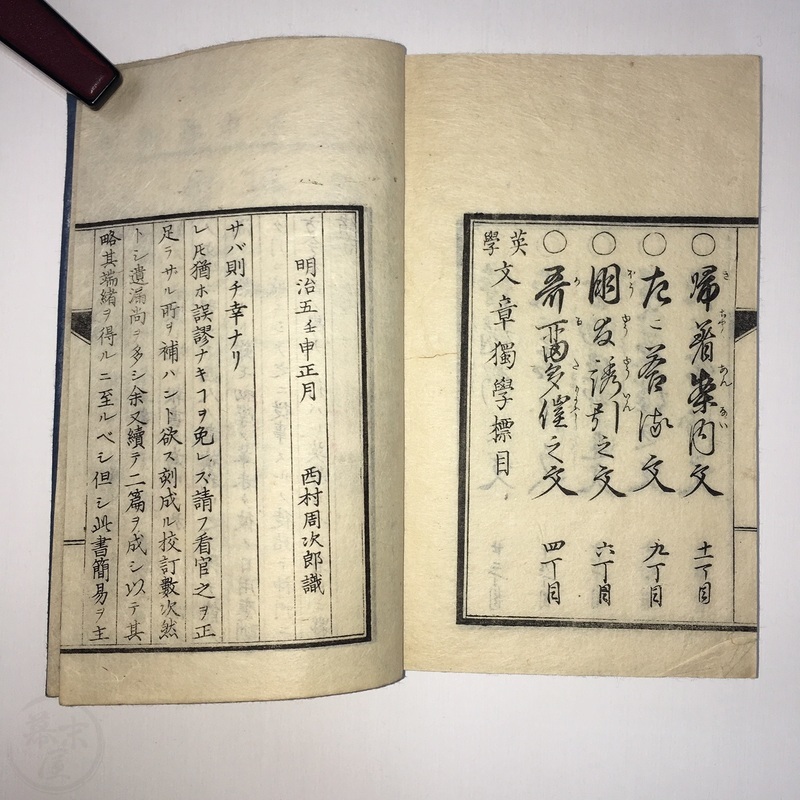 略其端緒ヲ得ルニ至ルベシ但シ此書簡易ヲ主
トシ遺漏尚ヲ多シ余又續テ二篇ヲ成シ以テ其
足ラザル所ヲ補ハント欲ス刻成ル校訂數次然
レ𪜈猶ホ誤謬ナキヿヲ免レズ請フ看官之ヲ正
サバ則チ幸ナリ
明治五壬申正月 西村周次郎識
英學文章獨學標目
○哥畱多催之文 四丁目
○朋友誘引之文 六丁目
○右ニ答る文 九丁目
○帰着案内文 十一丁目